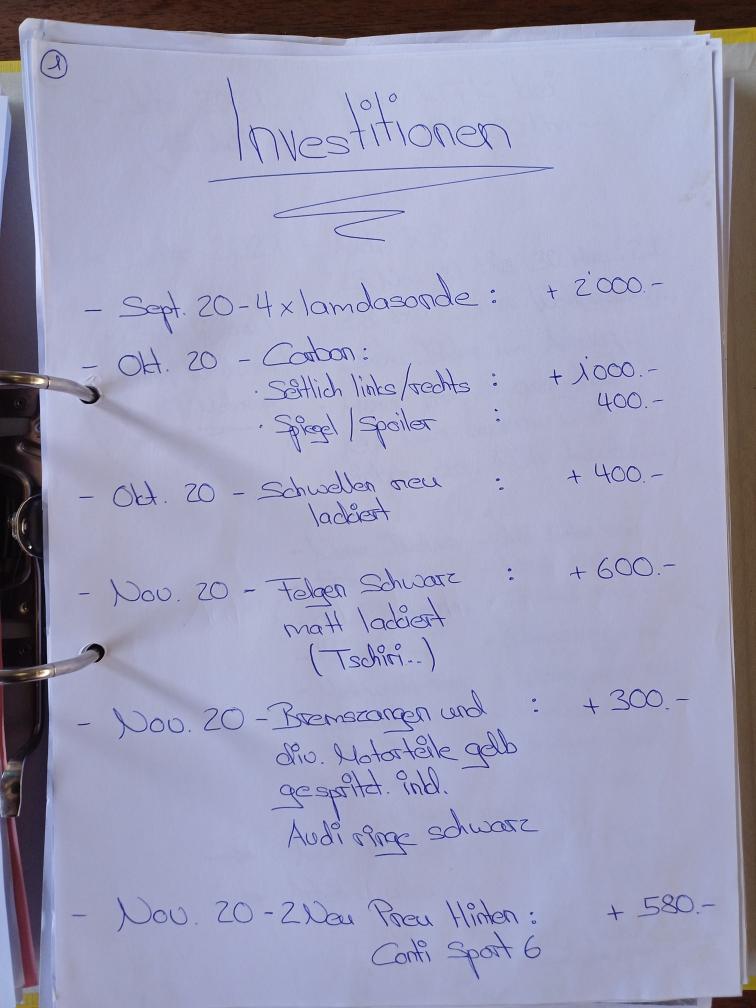 1
Investitionen
- Sept. 20 - 4 x lamdasonde : + 2'000.-
- Okt. 20 - Carbon:
· Seitlich links/rechts : + 1'000.-
· Spiegel / Spoiler : 400.-
- Okt. 20 - Schwellen neu : + 400.-
lackiert
- Nov. 20 - Felgen Schwarz : + 600.-
matt lackiert
(Tschiri..)
- Nov. 20 - Bremszangen und : + 300.-
div. Motorteile gelb
gespritzt. inkl.
Audi ringe schwarz
- Nov. 20 - 2 Neu Pneu Hinten : + 580.-
Conti Sport 6